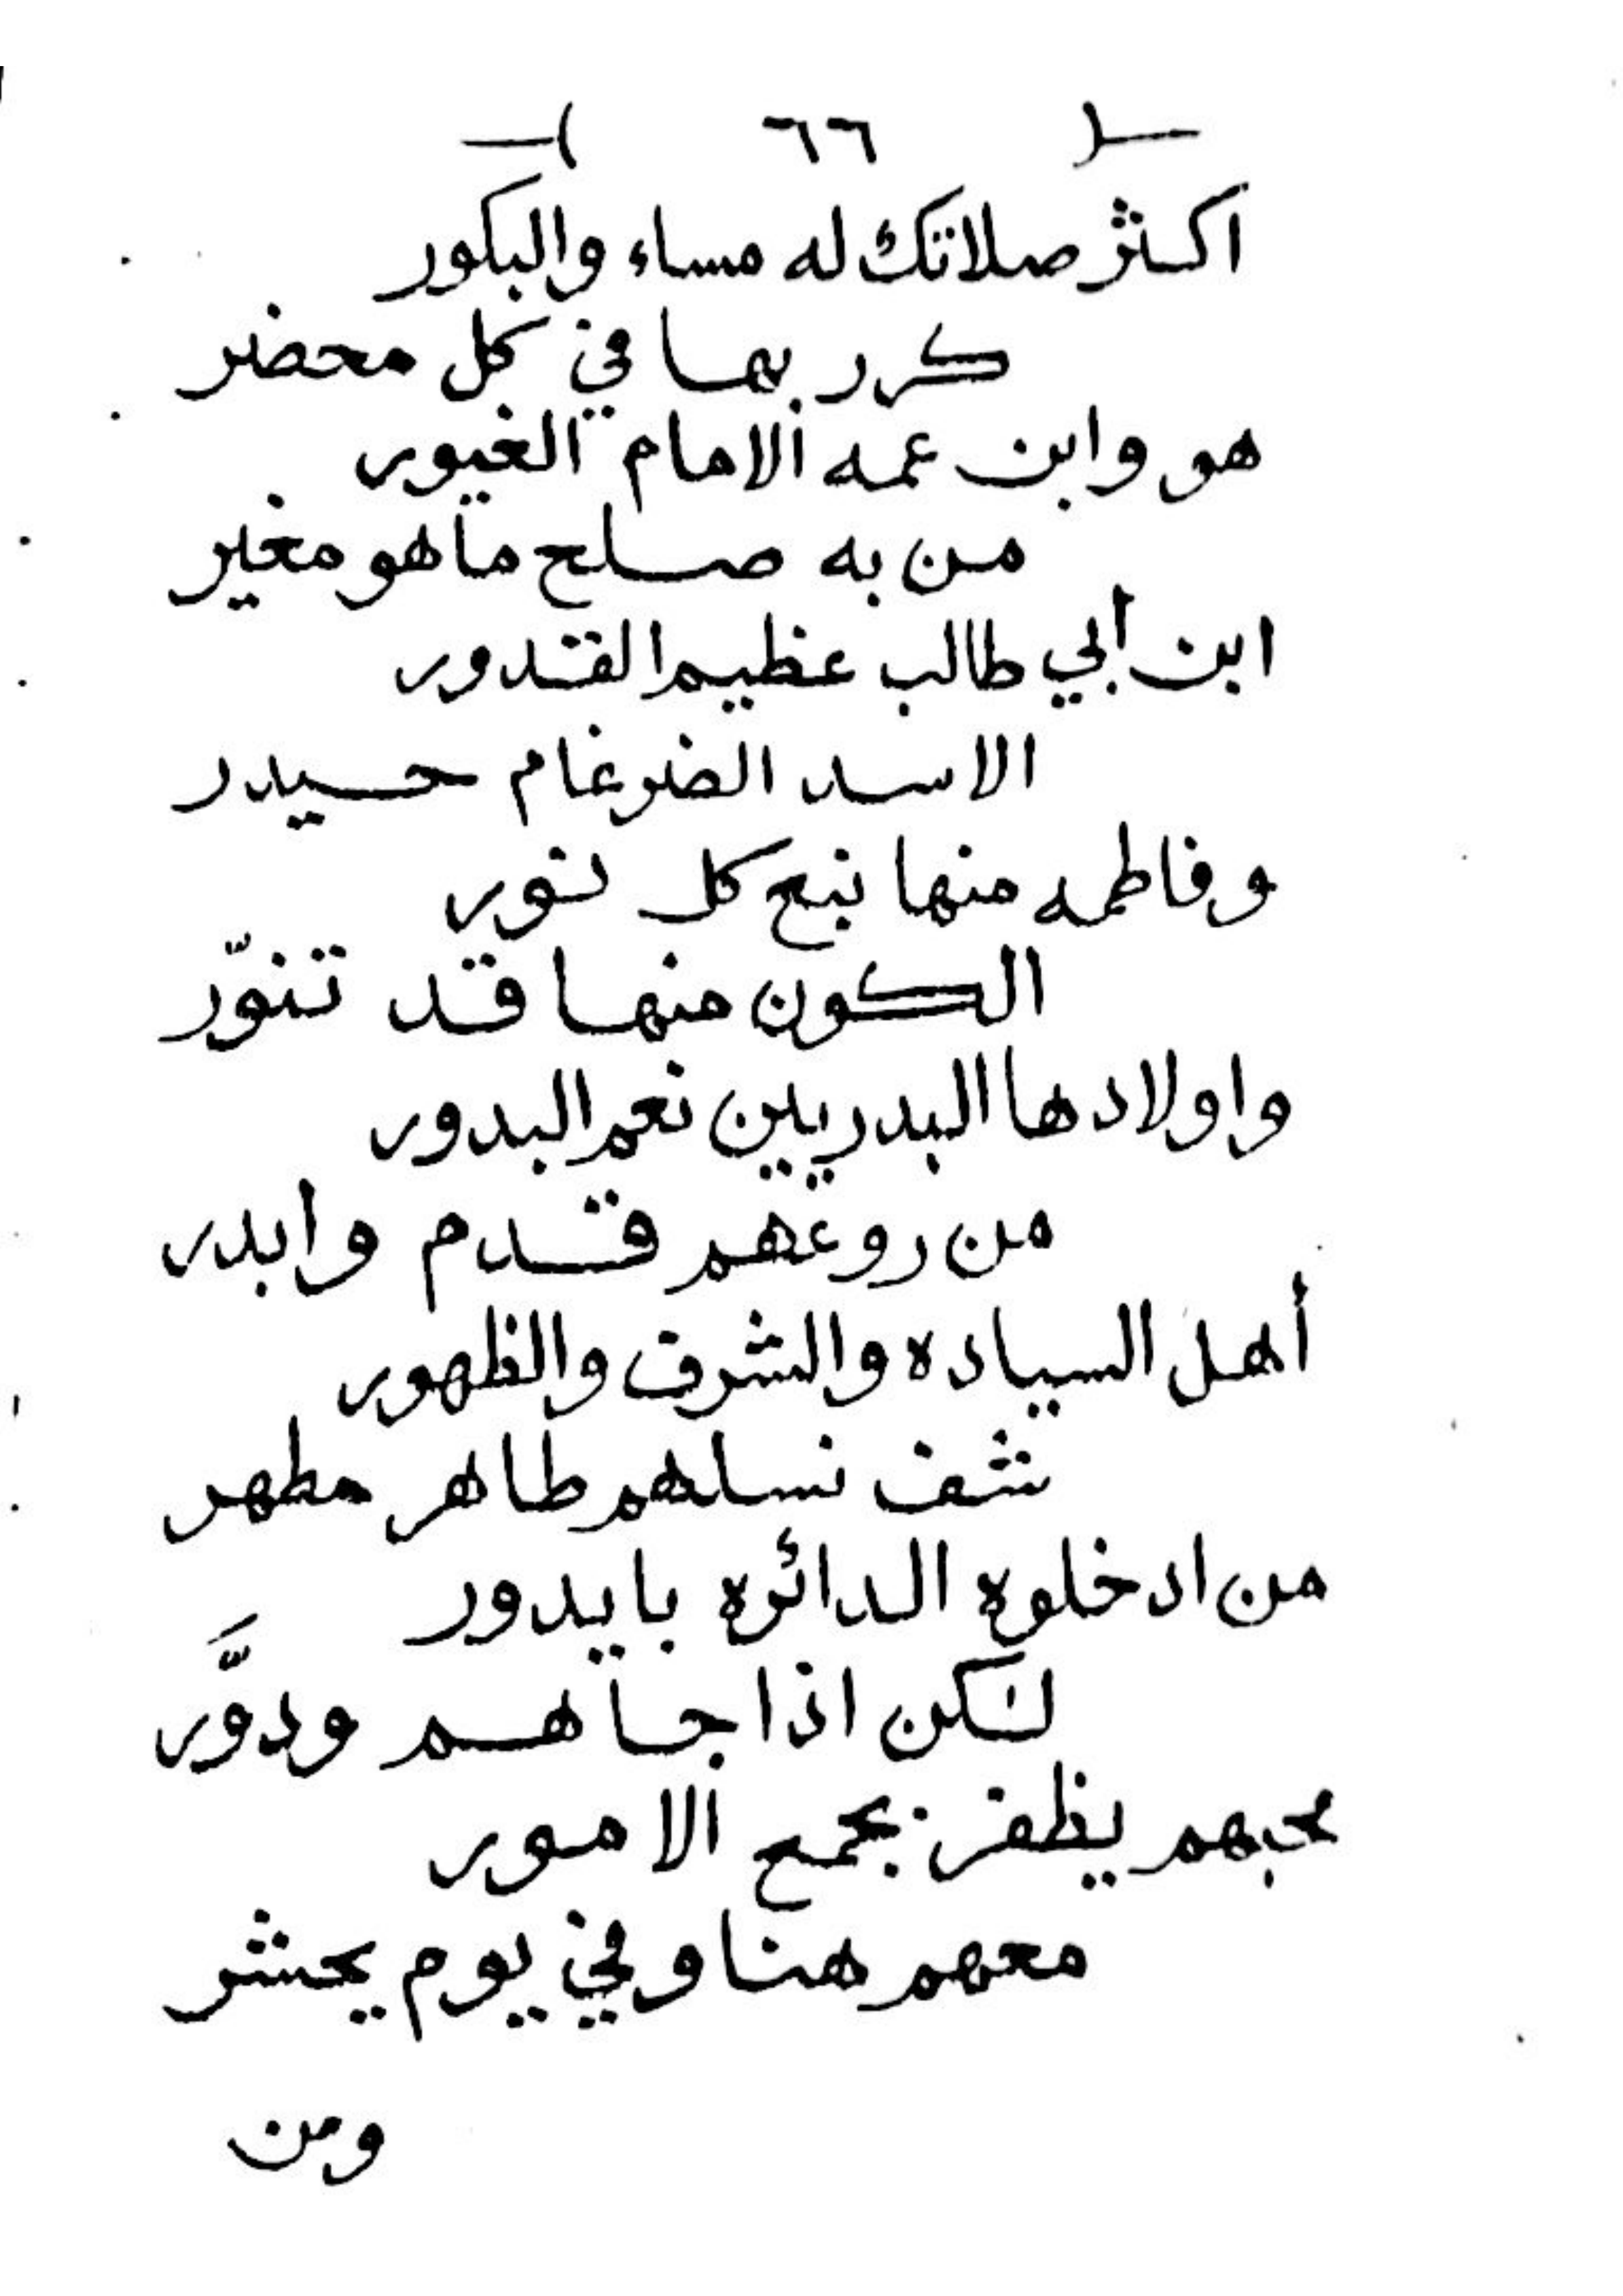 ٦٦
اكثر صلاتك له مساء والبكور
كرر بها في كل محضر
هو وابن عمه الامام الغيور
من به صلح ماهو مغير
ابن أبي طالب عظيم القدور
الاسد الضرغام حيدر
وفاطمه منها نبع كل نور
الكون منها قد تنوّر
واولادها البدريين نعم البدور
من روعهم قدم وابدر
أهل السياده والشرف والظهور
شف نسلهم طاهر مطهر
من ادخلوه الدائره بايدور
لكن اذا جاهم ودوَّر
محبهم يظفر بجمع الامور
معهم هنا وفي يوم يحشر
ومن